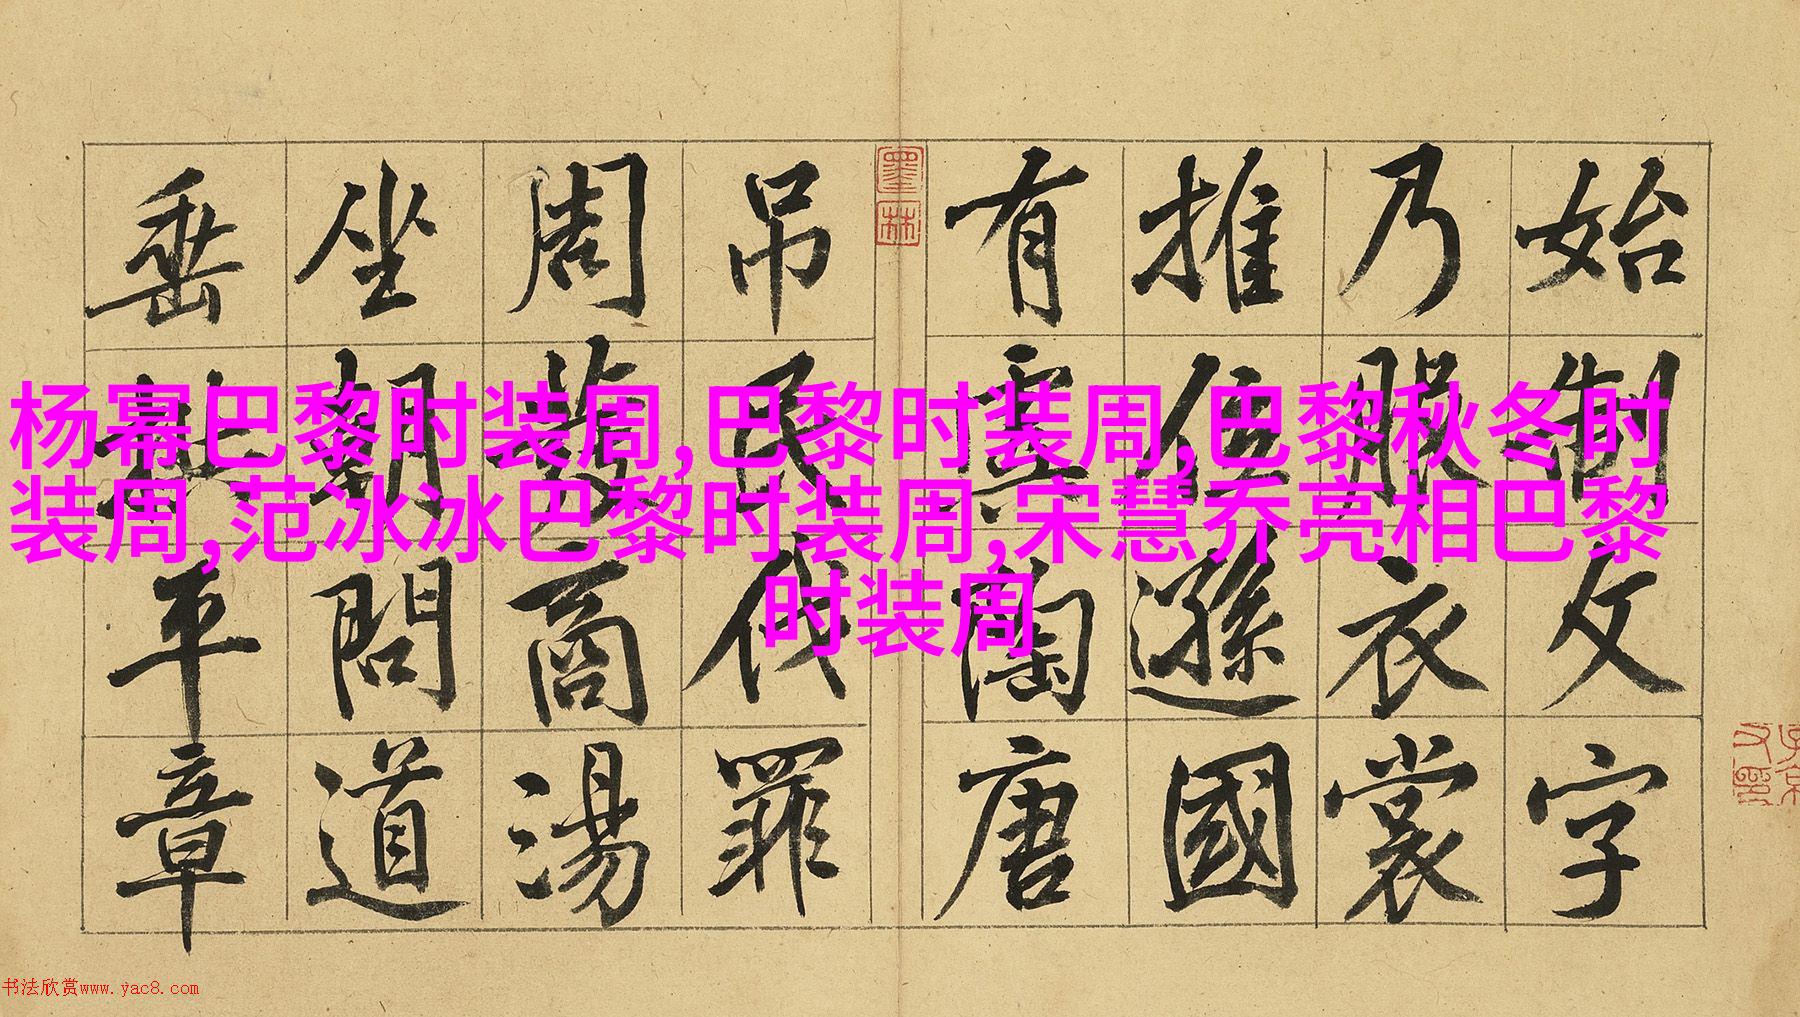 始制文字
乃服衣裳
推位遜國
有虞陶唐
吊民伐罪
周發商湯
坐朝問道
垂拱平章
墨林
杨幂巴黎时装周,巴黎时装周,巴黎秋冬时
装周,范冰冰巴黎时装周,宋慧乔亮相巴黎
时装周
书法欣赏www.yac8.com